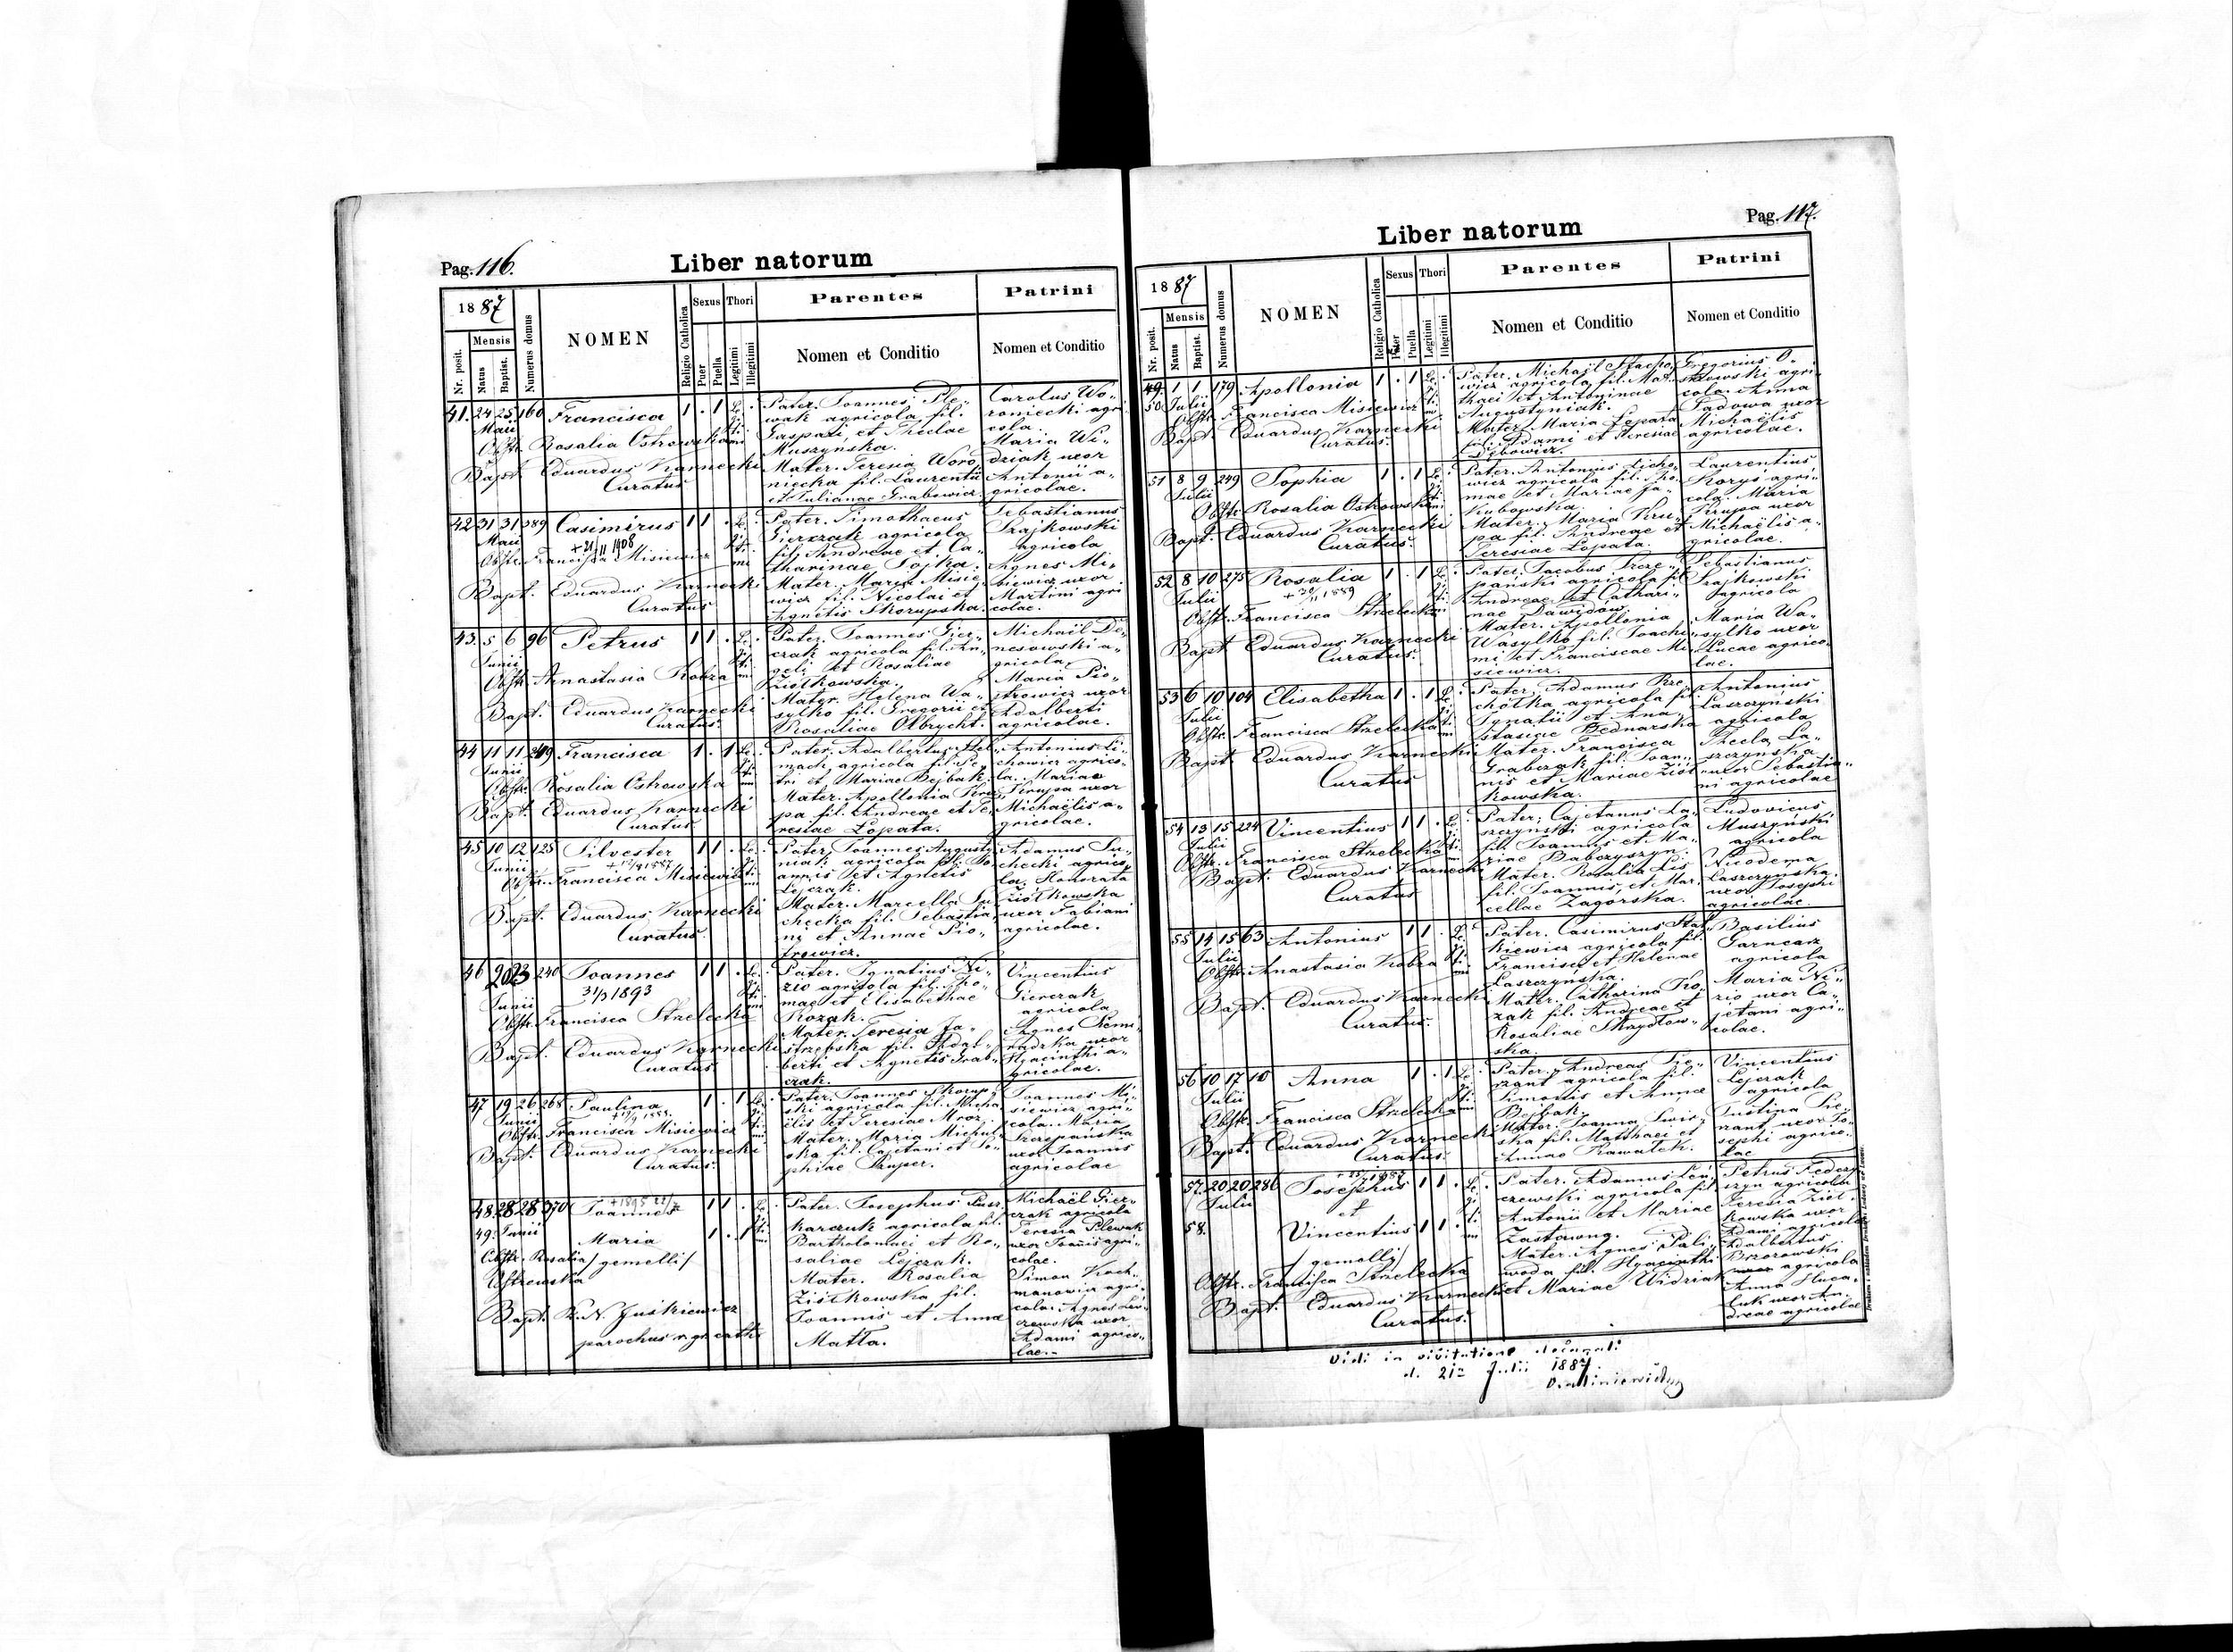 Pag. 116.
Liber natorum
1887
Nr. posit.
Mensis
Natus
Baptist.
Numerus domus
NOMEN
Religio Catholica
Sexus
Puer
Puella
Thori
Legitimi
Illegitimi
Parentes
Nomen et Conditio
Patrini
Nomen et Conditio
41. 24 25 160 Francisca 1 . 1 Le
Maii
Obstr. Rosalia Ostrowska
Bapt. Eduardus Karnecki
Curatus
Pater. Joannes Ple-
wak agricola fil.
Gaspari, et Theclae
Muszynska.
Mater. Teresia Woro
niecka fil. Laurentii
et Julianae Grabowicz.
Carolus Wo-
roniecki agri
cola.
Maria Wi-
dziak uxor
Antonii a-
gricolae.
42 31 31 389 Casimirus 1 1 .
Maii
+ 21/11 1908
Obstr. Francisca Misiewicz
Bapt. Eduardus Karnecki
Curatus
Pater. Timothaeus
Gierczak agricola
fil. Andreae et Ca-
tharinae Sojka.
Mater. Maria Misie
wicz fil. Nicolai et
Agnetis Skorupska.
Sebastianus
Szajkowski
agricola
Agnes Mi-
biewicz uxor
Martini agri
colae.
43. 5 6 96 Petrus 1 1 .
Junii
Obstr. Anastasia Kobza
Bapt. Eduardus Karnecki
Curatus.
Pater. Joannes Gier-
czak agricola fil. An-
geli et Rosaliae
Ziółkowska.
Mater. Helena Wa-
sylko fil. Gregorii et
Rosaliae Olbrycht.
Michaël De-
nesowski a-
gricola,
Maria Pio-
trowicz uxor
Adalberti
agricolae.
44 11 11 249 Francisca 1 . 1
Junii
Obstr. Rosalia Ostrowska
Bapt. Eduardus Karnecki
Curatus
Pater. Adalbertus Stel-
mach, agricola fil. Pe-
tri et Mariae Bejbak.
Mater. Apollonia Kru
pa fil. Andreae et Te-
resiae Łopata.
Antonius Li-
chowicz agrico-
la. Mariae
Krupa uxor
Michaëlis a-
gricolae.
45 10 12 125 Silvester 1 1 .
Junii
Obstr. Francisca Misiewicz
Bapt. Eduardus Karnecki
Curatus.
Pater. Joannes Augusty
niak agricola fil. Jo-
annis et Agnetis
Lejczak.
Mater. Marcella Su
checka fil. Sebastia
ni et Annae Pio-
trowicz.
Adamus Su-
checki agrico-
la. Honorata
Ziółkowska
uxor Fabiani
agricolae.
46 20 23 240 Joannes 1 1 .
Junii
31/3 1893
Obstr. Francisca Strzelecka
Bapt. Eduardus Karnecki
Curatus
Pater. Ignatius Ni-
zio agricola fil. Tho-
mae et Elisabethae
Kozak.
Mater. Teresia Ja-
strzebska fil. Adal-
berti et Agnetis Grab-
czak.
Vincentius
Gierczak
agricola
Agnes
uxor
Hyacinthi a-
gricolae.
47 19 26 268 Paulina 1 . 1
Junii
Obstr. Francisca Misiewicz
Bapt. Eduardus Karnecki
Curatus.
Pater. Joannes Skorup-
ski agricola fil. Micha
ëlis et Teresiae Mroz.
Mater. Maria Michul
ska fil. Cajetani et So-
phiae Pruper.
Joannes Mi-
siewicz agri-
cola. Maria
Szczepańska
uxor Joannis
agricolae
48. 28 28 370 Joannes 1 1 .
49. Junii
Maria 1 . 1
Obstr. Rosalia / gemelli /
Ostrowska
Bapt. K. N. Juśkiewicz
parochus r. gr. cath.
Pater. Josephus Pusz
karczuk agricola fil.
Bartholomaei et Ro-
saliae Lejczak.
Mater. Rosalia
Ziółkowska fil.
Joannis et Anna
Matla.
Michaël Gier-
czak agricola
Teresia Plewak
uxor Joannis agri-
colae.
Simon Koch-
manowicz agri-
cola. Agnes Len-
czewska uxor
Adami agrico-
lae.-
Pag. 117.
Liber natorum
1887
Nr. posit.
Mensis
Natus
Baptist.
Numerus domus
NOMEN
Religio Catholica
Sexus
Puer
Puella
Thori
Legitimi
Illegitimi
Parentes
Nomen et Conditio
Patrini
Nomen et Conditio
49. 1 1 179 Apollonia 1 . 1
50 Julii
Obstr. Francisca Misiewicz
Bapt. Eduardus Karnecki
Curatus.
Pater. Michaël Stacho
wicz agricola fil. Mat-
thaei et Antoninae
Augustyniak.
Mater. Maria Łepata
fil. Adami et Teresiae
Dębowicz.
Gregorius O-
agri-
cola. Anna
Sadowa uxor
Michaëlis
agricolae.
51 8 9 249 Sophia 1 . 1
Julii
Obstr. Rosalia Ostrowska
Bapt. Eduardus Karnecki
Curatus.
Pater. Antonius Licho-
wicz agricola fil. Tho-
mae et Mariae Ja-
kubowska.
Mater. Maria Kru-
pa fil. Andreae et
Teresiae Łopata.
Laurentius
Korys agri-
cola. Maria
Krupa uxor
Michaëlis a-
gricolae.
52 8 10 275 Rosalia 1 . 1
Julii
Obstr. Francisca Strzelecka
Bapt. Eduardus Karnecki
Curatus.
Pater. Jacobus Szcze-
pański agricola fil.
Andreae et Cathari-
nae Dawidow.
Mater. Apollonia
Wasylko fil. Joachi-
mi et Franciscae Mi-
siewicz.
Sebastianus
Szajkowski
agricola
Maria Wa-
sylko uxor
Lucae agrico-
lae.
53 6 10 104 Elisabetha 1 . 1
Julii
Obstr. Francisca Strzelecka
Bapt. Eduardus Karnecki
Curatus
Pater. Adamus Prze
chotka agricola fil.
Ignatii et Ana-
stasiae Bednarska
Mater. Francisca
Grabczak fil. Joan-
nis et Mariae Ziół-
kowska.
Antonius
Laszczyński
agricola
Thecla La-
szczynska
uxor Sebastia-
ni agricolae
54 13 15 224 Vincentius 1 1 .
Julii
Obstr. Francisca Strzelecka
Bapt. Eduardus Karnecki
Curatus
Pater. Cajetanus La-
szczyński agricola
fil. Joannis et Ma-
riae Babczyszyn.
Mater. Rosalia Lis
fil. Joannis, et Mar-
cellae Zagórska.
Ludovicus
Muszyński
agricola
Nicodema
Laszczynska.
uxor Josephi
agricolae.
55 14 15 63 Antonius 1 1 .
Julii
Obstr. Anastasia Kobza
Bapt. Eduardus Karnecki
Curatus.
Pater. Casimirus Stat-
kiewicz agricola fil.
Francisci et Helenae
Laszczyńska.
Mater. Catharina Ko-
zak fil. Andreae et
Rosaliae Skrzydłow-
ska.
Basilius
Garncarz
agricola
Maria Ni-
zio uxor Ca-
jetani agri-
colae.
56 10 17 10 Anna 1 . 1
Julii
Obstr. Francisca Strzelecka
Bapt. Eduardus Karnecki
Curatus.
Pater. Andreas Pie-
rzant agricola fil.
Simonis et Annae
Bejbak.
Mater. Joanna Swis-
ska fil. Matthaei et
Annae Kawałek.
Vincentius
Lejczak
agricola
Justina Pie-
rzant uxor Jo-
sephi agrico-
lae
57. 20 20 286 Josephus 1 1 .
Julii
et
58. Vincentius 1 1 .
/ gemelli /
Obstr. Francisca Strzelecka
Bapt. Eduardus Karnecki
Curatus.
Pater. Adamus Len-
czewski agricola fil.
Antonii et Mariae
Zastawny.
Mater. Agnes Pali-
woda fil. Hyacinthi
et Mariae Widziak
Petrus Federy-
szyn agricola
Teresia Ziół-
kowska uxor
Adami agricolae
Adalbertus
Brzozowski
agricola
Anna Huca-
luk uxor An-
dreae agricolae
Vidi in visitatione decanali
d. 21 Julii 1887